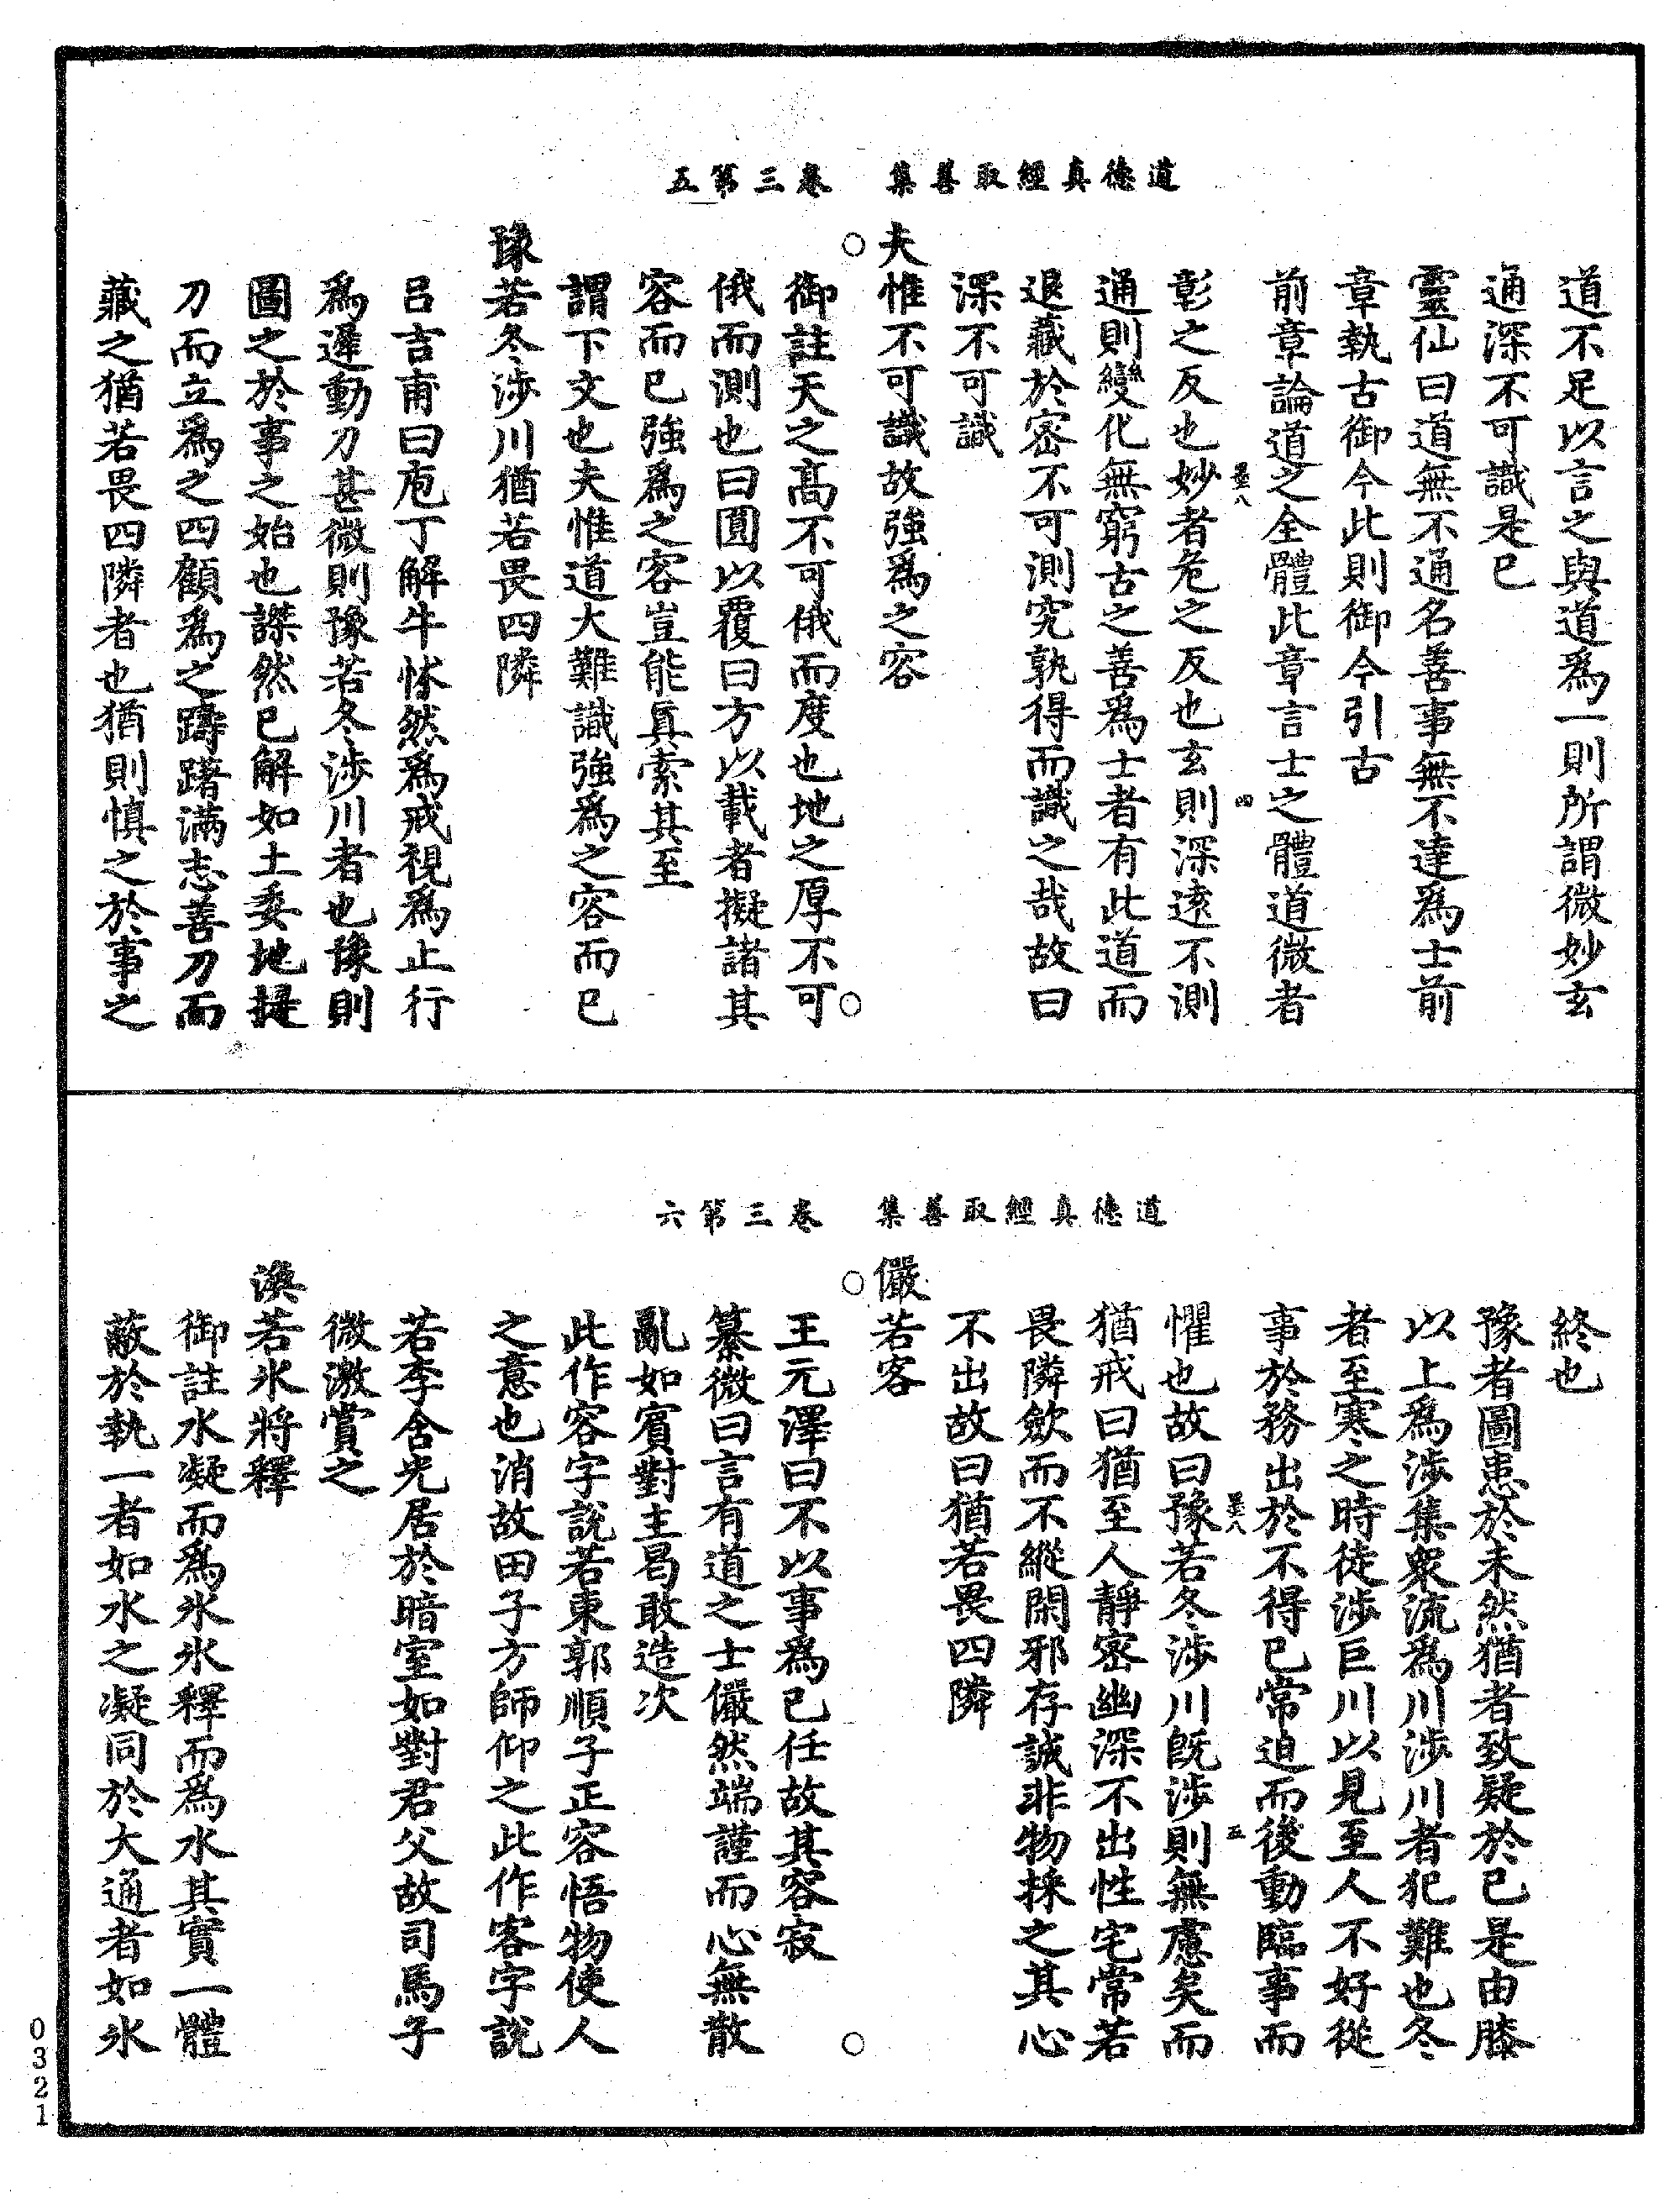 道德真經取善集　卷三第五
道不足以言之與道爲一則所謂微妙玄
通深不可識是已
靈仙曰道無不通名善事無不達爲士前
章執古御今此則御今引古
前章論道之全體此章言士之體道微者
墨八　四
彰之反也妙者危之反也玄則深遠不測
通則變化無窮古之善爲士者有此道而
退藏於密不可測究孰得而識之哉故曰
深不可識
夫惟不可識故強爲之容
御註天之高不可俄而度也地之厚不可
俄而測也曰圓以覆曰方以載者擬諸其
容而已強爲之容豈能真索其至
謂下文也夫惟道大難識強爲之容而已
豫若冬涉川猶若畏四隣
呂吉甫曰庖丁解牛怵然爲戒視爲止行
爲遲動刀甚微則豫若冬涉川者也豫則
圖之於事之始也謋然已解如土委地提
刀而立爲之四顧爲之躊躇滿志善刀而
藏之猶若畏四隣者也猶則慎之於事之
道德真經取善集　卷三第六
終也
豫者圖患於未然猶者致疑於已是由膝
以上爲涉集衆流爲川涉川者犯難也冬
者至寒之時徒涉巨川以見至人不好從
事於務出於不得已常迫而後動臨事而
墨八　五
懼也故曰豫若冬涉川既涉則無慮矣而
猶戒曰猶至人靜密幽深不出性宅常若
畏隣歛而不縱閑邪存誠非物採之其心
不出故曰猶若畏四隣
儼若客
王元澤曰不以事爲已任故其容寂
纂微曰言有道之士儼然端謹而心無散
亂如賓對主曷敢造次
此作容字說若東郭順子正容悟物使人
之意也消故田子方師仰之此作客字說
若李含光居於暗室如對君父故司馬子
微激賞之
渙若氷將釋
御註水凝而爲氷氷釋而爲水其實一體
蔽於執一者如水之凝同於大通者如氷
0321